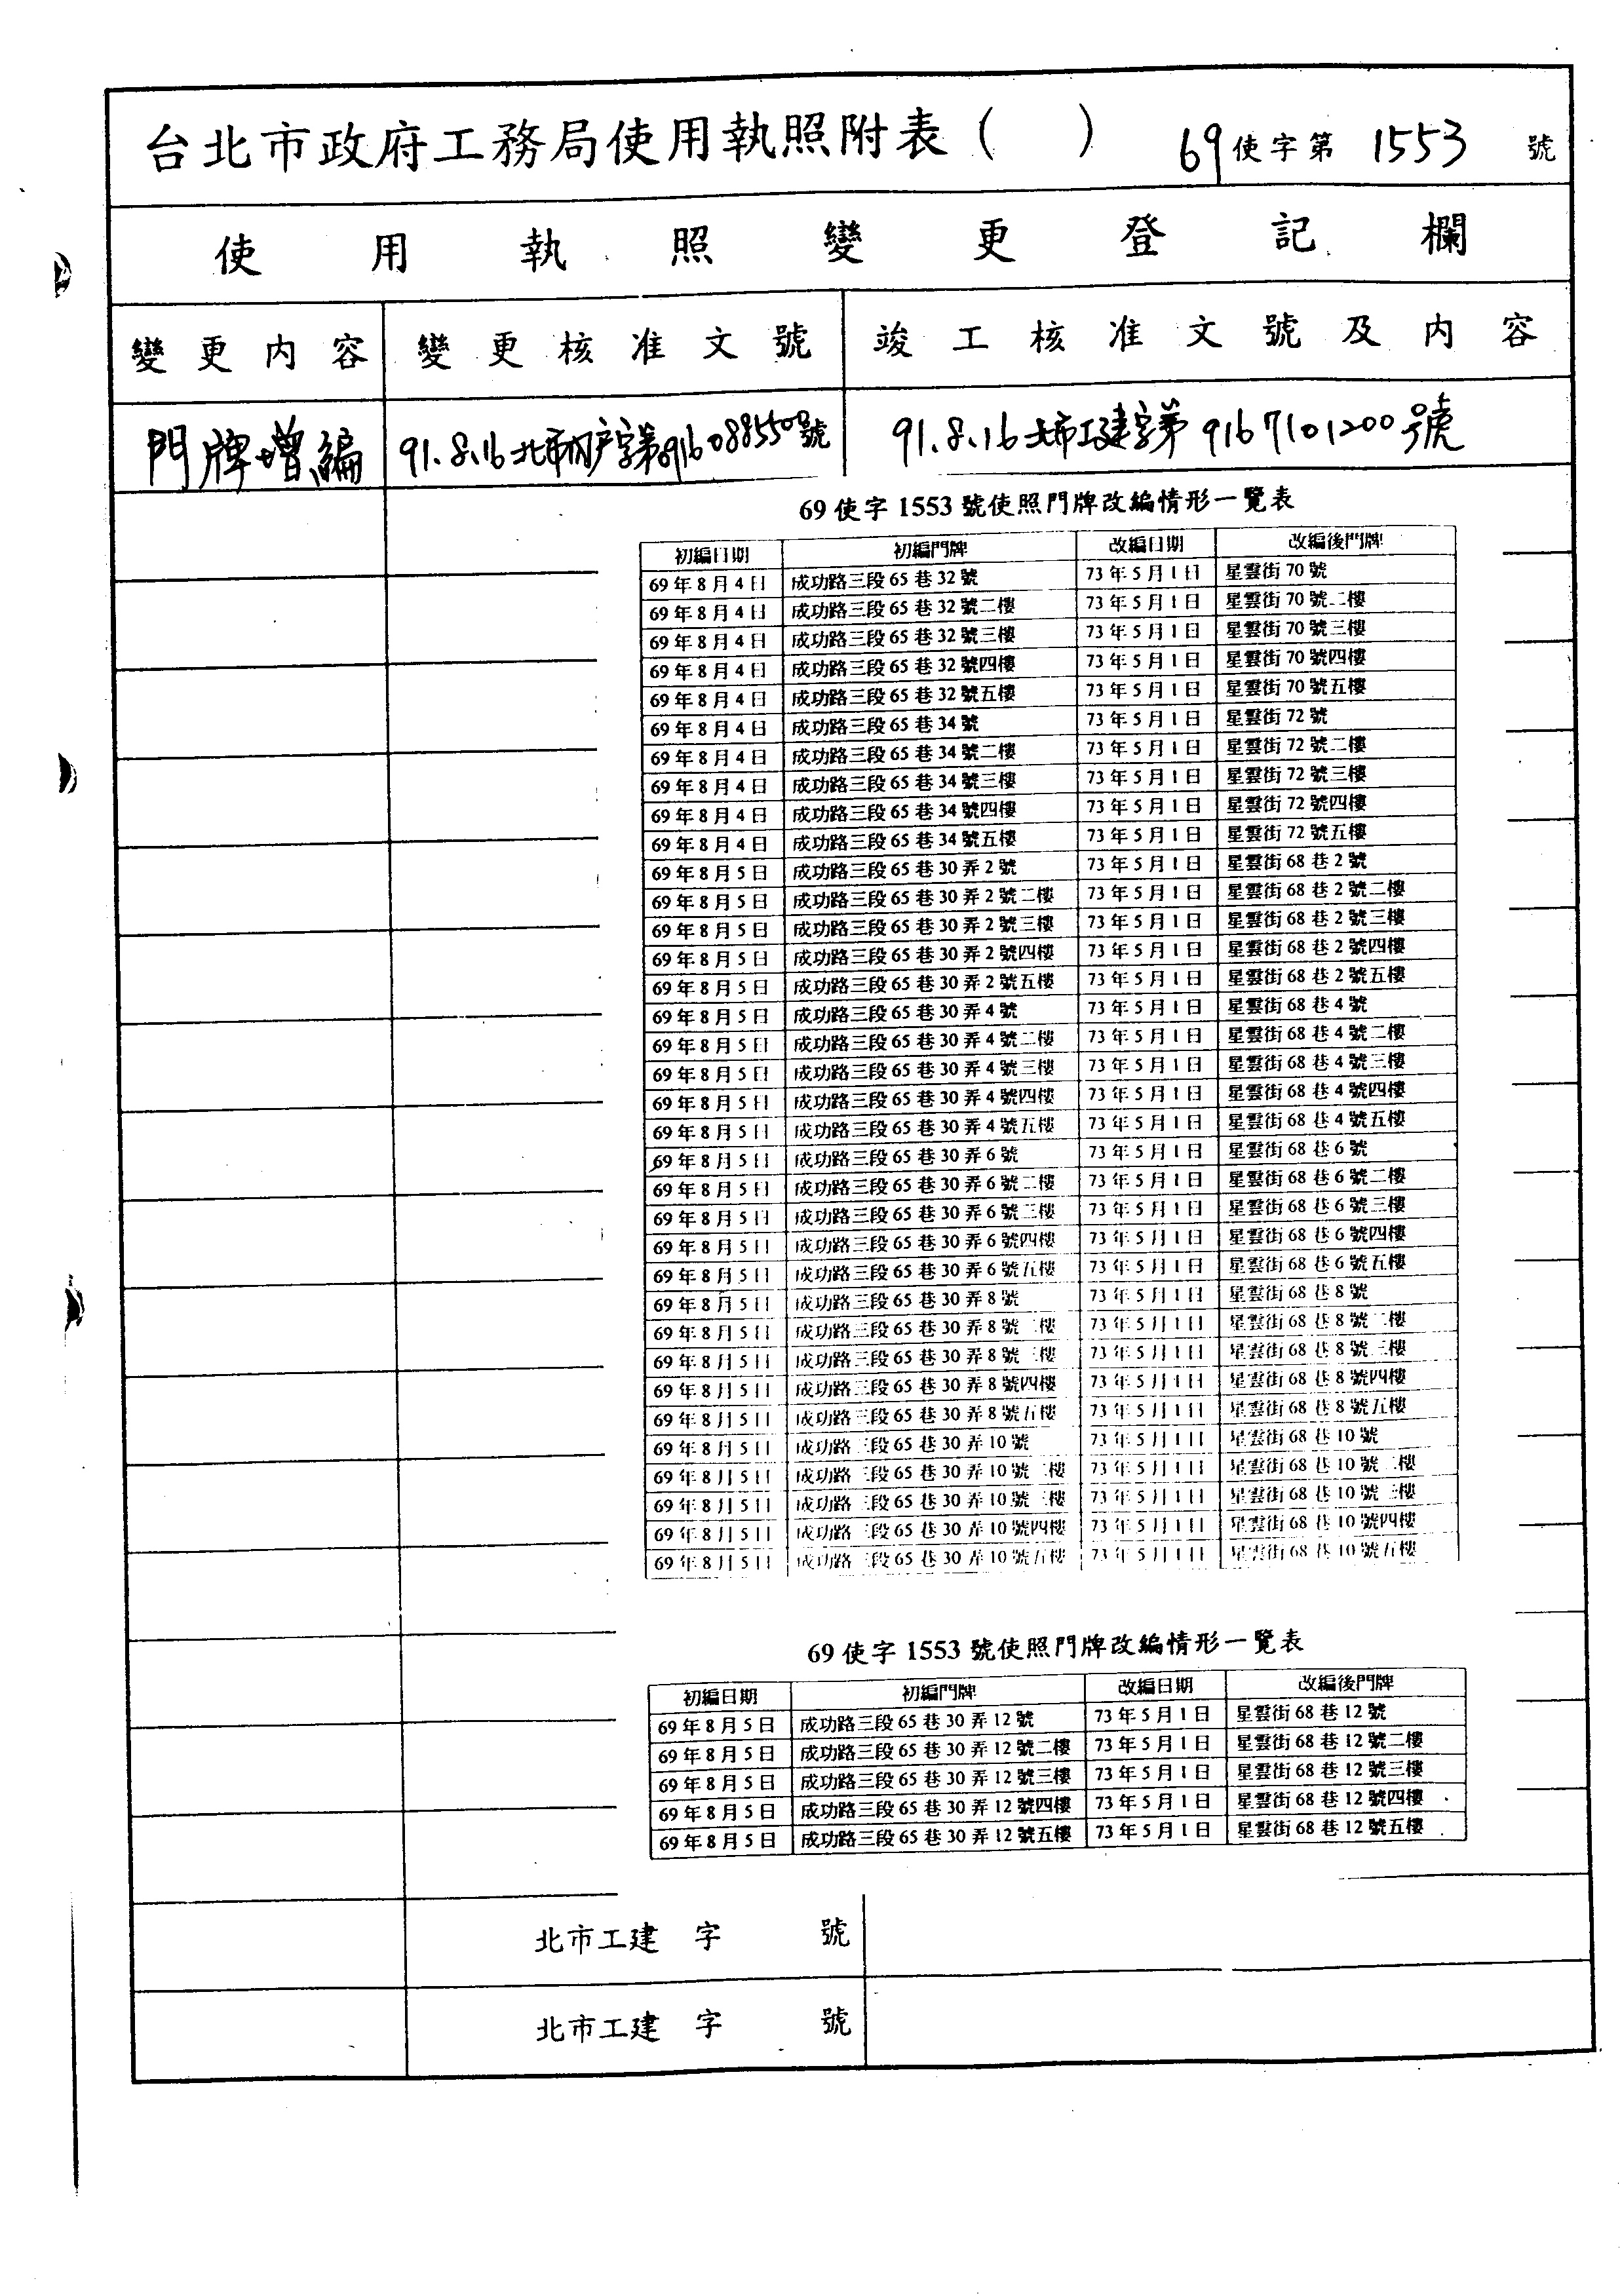 台北市政府工務局使用執照附表( ) 69使字第 1553 號
使用執照變更登記欄
變更內容 變更核准文號 竣工核准文號及內容
門牌增編 91.8.16北市內戶字第 號 91.8.16北市工建字第 9167101200號
69 使字 1553 號使照門牌改編情形一覽表
初編日期 初編門牌 改編日期 改編後門牌
69 年 8 月 4 日 成功路三段 65 巷 32 號 73 年 5 月 1 日 星雲街 70 號
69 年 8 月 4 日 成功路三段 65 巷 32 號二樓 73 年 5 月 1 日 星雲街 70 號二樓
69 年 8 月 4 日 成功路三段 65 巷 32 號三樓 73 年 5 月 1 日 星雲街 70 號三樓
69 年 8 月 4 日 成功路三段 65 巷 32 號四樓 73 年 5 月 1 日 星雲街 70 號四樓
69 年 8 月 4 日 成功路三段 65 巷 32 號五樓 73 年 5 月 1 日 星雲街 70 號五樓
69 年 8 月 4 日 成功路三段 65 巷 34 號 73 年 5 月 1 日 星雲街 72 號
69 年 8 月 4 日 成功路三段 65 巷 34 號二樓 73 年 5 月 1 日 星雲街 72 號二樓
69 年 8 月 4 日 成功路三段 65 巷 34 號三樓 73 年 5 月 1 日 星雲街 72 號三樓
69 年 8 月 4 日 成功路三段 65 巷 34 號四樓 73 年 5 月 1 日 星雲街 72 號四樓
69 年 8 月 4 日 成功路三段 65 巷 34 號五樓 73 年 5 月 1 日 星雲街 72 號五樓
69 年 8 月 5 日 成功路三段 65 巷 30 弄 2 號 73 年 5 月 1 日 星雲街 68 巷 2 號
69 年 8 月 5 日 成功路三段 65 巷 30 弄 2 號二樓 73 年 5 月 1 日 星雲街 68 巷 2 號二樓
69 年 8 月 5 日 成功路三段 65 巷 30 弄 2 號三樓 73 年 5 月 1 日 星雲街 68 巷 2 號三樓
69 年 8 月 5 日 成功路三段 65 巷 30 弄 2 號四樓 73 年 5 月 1 日 星雲街 68 巷 2 號四樓
69 年 8 月 5 日 成功路三段 65 巷 30 弄 2 號五樓 73 年 5 月 1 日 星雲街 68 巷 2 號五樓
69 年 8 月 5 日 成功路三段 65 巷 30 弄 4 號 73 年 5 月 1 日 星雲街 68 巷 4 號
69 年 8 月 5 日 成功路三段 65 巷 30 弄 4 號二樓 73 年 5 月 1 日 星雲街 68 巷 4 號二樓
69 年 8 月 5 日 成功路三段 65 巷 30 弄 4 號三樓 73 年 5 月 1 日 星雲街 68 巷 4 號三樓
69 年 8 月 5 日 成功路三段 65 巷 30 弄 4 號四樓 73 年 5 月 1 日 星雲街 68 巷 4 號四樓
69 年 8 月 5 日 成功路三段 65 巷 30 弄 4 號五樓 73 年 5 月 1 日 星雲街 68 巷 4 號五樓
69 年 8 月 5 日 成功路三段 65 巷 30 弄 6 號 73 年 5 月 1 日 星雲街 68 巷 6 號
69 年 8 月 5 日 成功路三段 65 巷 30 弄 6 號二樓 73 年 5 月 1 日 星雲街 68 巷 6 號二樓
69 年 8 月 5 日 成功路三段 65 巷 30 弄 6 號三樓 73 年 5 月 1 日 星雲街 68 巷 6 號三樓
69 年 8 月 5 日 成功路三段 65 巷 30 弄 6 號四樓 73 年 5 月 1 日 星雲街 68 巷 6 號四樓
69 年 8 月 5 日 成功路三段 65 巷 30 弄 6 號五樓 73 年 5 月 1 日 星雲街 68 巷 6 號五樓
69 年 8 月 5 日 成功路三段 65 巷 30 弄 8 號 73 年 5 月 1 日 星雲街 68 巷 8 號
69 年 8 月 5 日 成功路三段 65 巷 30 弄 8 號二樓 73 年 5 月 1 日 星雲街 68 巷 8 號二樓
69 年 8 月 5 日 成功路三段 65 巷 30 弄 8 號三樓 73 年 5 月 1 日 星雲街 68 巷 8 號三樓
69 年 8 月 5 日 成功路三段 65 巷 30 弄 8 號四樓 73 年 5 月 1 日 星雲街 68 巷 8 號四樓
69 年 8 月 5 日 成功路三段 65 巷 30 弄 8 號五樓 73 年 5 月 1 日 星雲街 68 巷 8 號五樓
69 年 8 月 5 日 成功路三段 65 巷 30 弄 10 號 73 年 5 月 1 日 星雲街 68 巷 10 號
69 年 8 月 5 日 成功路三段 65 巷 30 弄 10 號二樓 73 年 5 月 1 日 星雲街 68 巷 10 號二樓
69 年 8 月 5 日 成功路三段 65 巷 30 弄 10 號三樓 73 年 5 月 1 日 星雲街 68 巷 10 號三樓
69 年 8 月 5 日 成功路三段 65 巷 30 弄 10 號四樓 73 年 5 月 1 日 星雲街 68 巷 10 號四樓
69 年 8 月 5 日 成功路三段 65 巷 30 弄 10 號五樓 73 年 5 月 1 日 星雲街 68 巷 10 號五樓
69 使字 1553 號使照門牌改編情形一覽表
初編日期 初編門牌 改編日期 改編後門牌
69 年 8 月 5 日 成功路三段 65 巷 30 弄 12 號 73 年 5 月 1 日 星雲街 68 巷 12 號
69 年 8 月 5 日 成功路三段 65 巷 30 弄 12 號二樓 73 年 5 月 1 日 星雲街 68 巷 12 號二樓
69 年 8 月 5 日 成功路三段 65 巷 30 弄 12 號三樓 73 年 5 月 1 日 星雲街 68 巷 12 號三樓
69 年 8 月 5 日 成功路三段 65 巷 30 弄 12 號四樓 73 年 5 月 1 日 星雲街 68 巷 12 號四樓
69 年 8 月 5 日 成功路三段 65 巷 30 弄 12 號五樓 73 年 5 月 1 日 星雲街 68 巷 12 號五樓
北市工建 字 號
北市工建 字 號